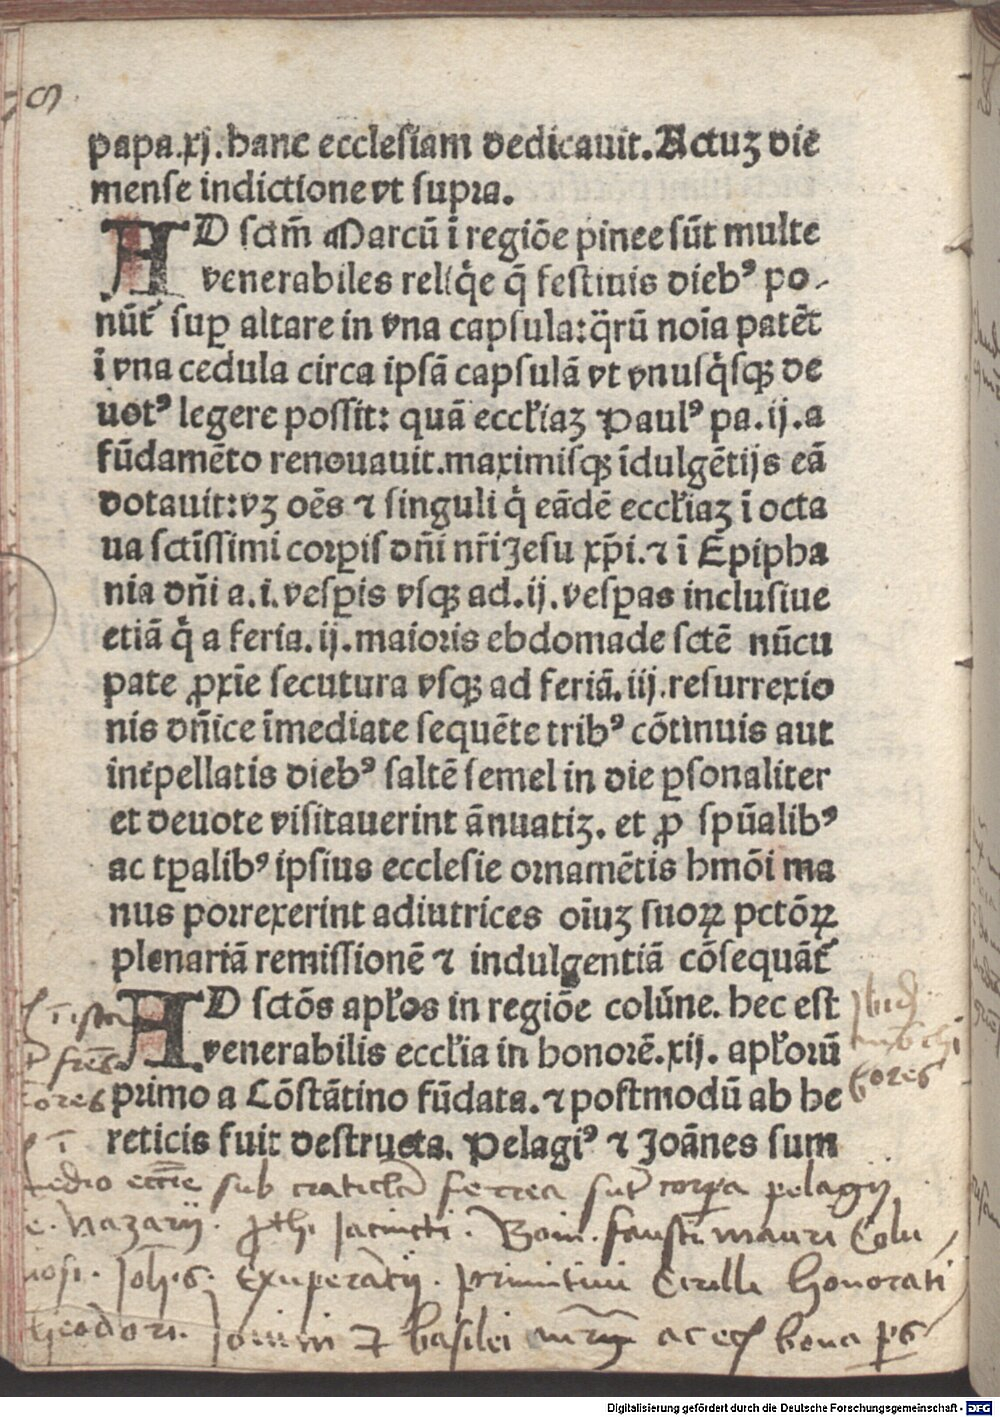 papa.xj.hanc ecclesiam dedicauit.Actuꝫ die
mense indictione vt supra.
AD sctm̄ Marcū ī regiōe pinee sūt multe
venerabiles reliq̇e q̄ festiuis dieb⁹ po-
nūt᷑ suꝑ altare in vna capsula:q̄rū noīa patēt
ī vna cedula circa ipsā capsulā vt vnusq̇sqꝫ de
uot⁹ legere possit: quā eccl̄iaꝫ Paul⁹ pa.ij.a
fūdamēto renouauit.maximisqꝫ īdulgētijs eā
dotauit:vꝫ oēs ⁊ singuli q̇ eādē eccl̄iaꝫ ī octa
ua sctīssimi corꝑis dn̄i nr̄i Jesu xp̄i.⁊ ī Epipha
nia dn̄i a.i.vesꝑis vsqꝫ ad.ij.vesꝑas inclusiue
etiā q̇ a feria.ij.maioris ebdomade sctē nūcu
pate ꝓxīe secutura vsqꝫ ad feriā.iij.resurrexio
nis dn̄ice īmediate sequēte trib⁹ cōtinuis aut
int̄pellatis dieb⁹ saltē semel in die ꝑsonaliter
et deuote visitauerint ānuatiꝫ. et ꝓ spūalib⁹
ac tꝑalib⁹ ipsius ecclesie ornamētis hmōi ma
nus porrexerint adiutrices oīuꝫ suoꝝ pctōꝝ
plenariā remissionē ⁊ indulgentiā cōsequāt᷑
AD sctōs apl̄os in regiōe colūne. hec est
venerabilis eccl̄ia in honorē.xij. apl̄orū
primo a Cōstātino fūdata.⁊ postmodū ab he
reticis fuit destructa. Pelagi⁹ ⁊ Joānes sum
ī ista
fr̄es
medio ecc̄ie sub craticla ferrea su̅t corꝑa pelagij
Nazarij. Jacincti. Boni. fausti mauri Colu
Joh̄is. Exuperatij. primitiui Cirilli honorati
theodori. Jouini ⁊ basilei mr̄m ac bona ꝑs
Digitalisierung gefördert durch die Deutsche Forschungsgemeinschaft - DFG